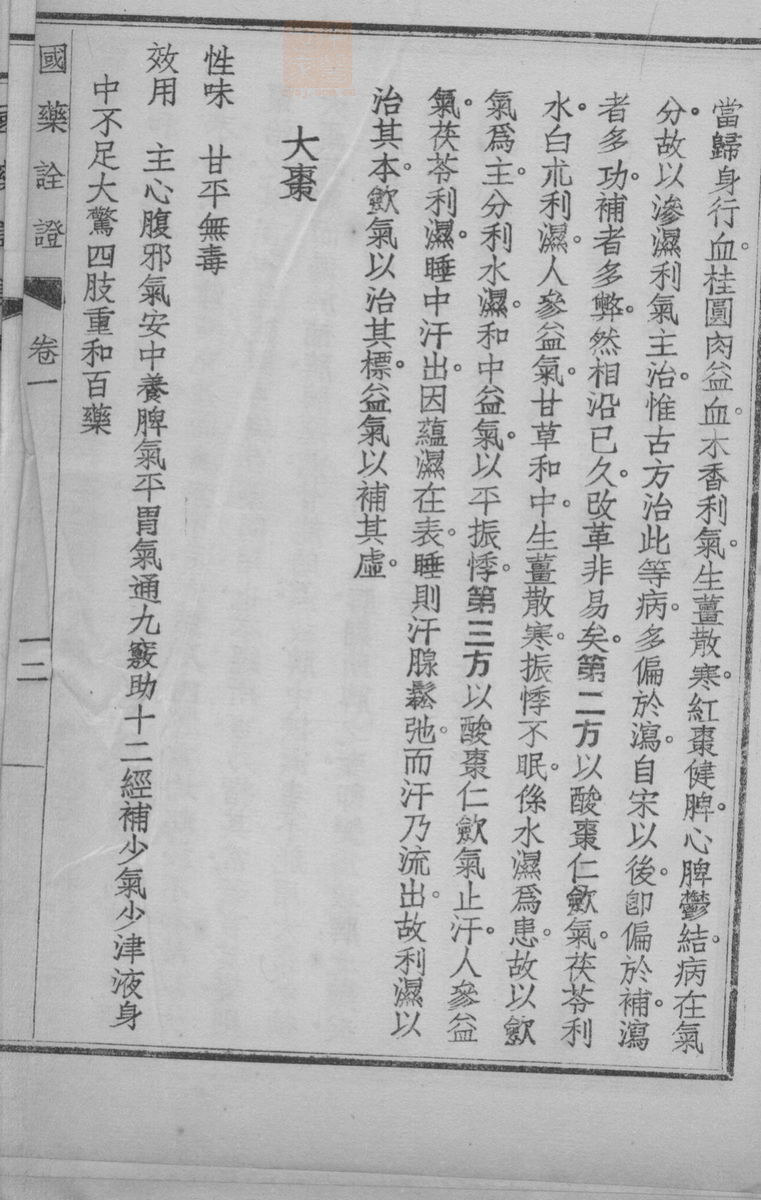 當歸身行血。桂圓肉益血。木香利氣。生薑散寒。紅棗健脾。心脾鬱結。病在氣
分。故以滲濕利氣主治。惟古方治此等病。多偏於瀉。自宋以後。卽偏於補。瀉
者多功。補者多弊。然相沿已久。改革非易矣。第二方以酸棗仁歛氣。茯苓利
水。白朮利濕。人參益氣。甘草和中。生薑散寒。振悸不眠。係水濕爲患。故以歛
氣爲主。分利水濕。和中益氣。以平振悸。第三方以酸棗仁歛氣止汗。人參益
氣。茯苓利濕。睡中汗出。因蘊濕在表。睡則汗腺鬆弛。而汗乃流出。故利濕以
治其本。歛氣以治其標。益氣以補其虛。
大棗
性味　甘平無毒
效用　主心腹邪氣安中養脾氣平胃氣通九竅助十二經補少氣少津液身
中不足大驚四肢重和百藥
國藥詮證　卷一　一二